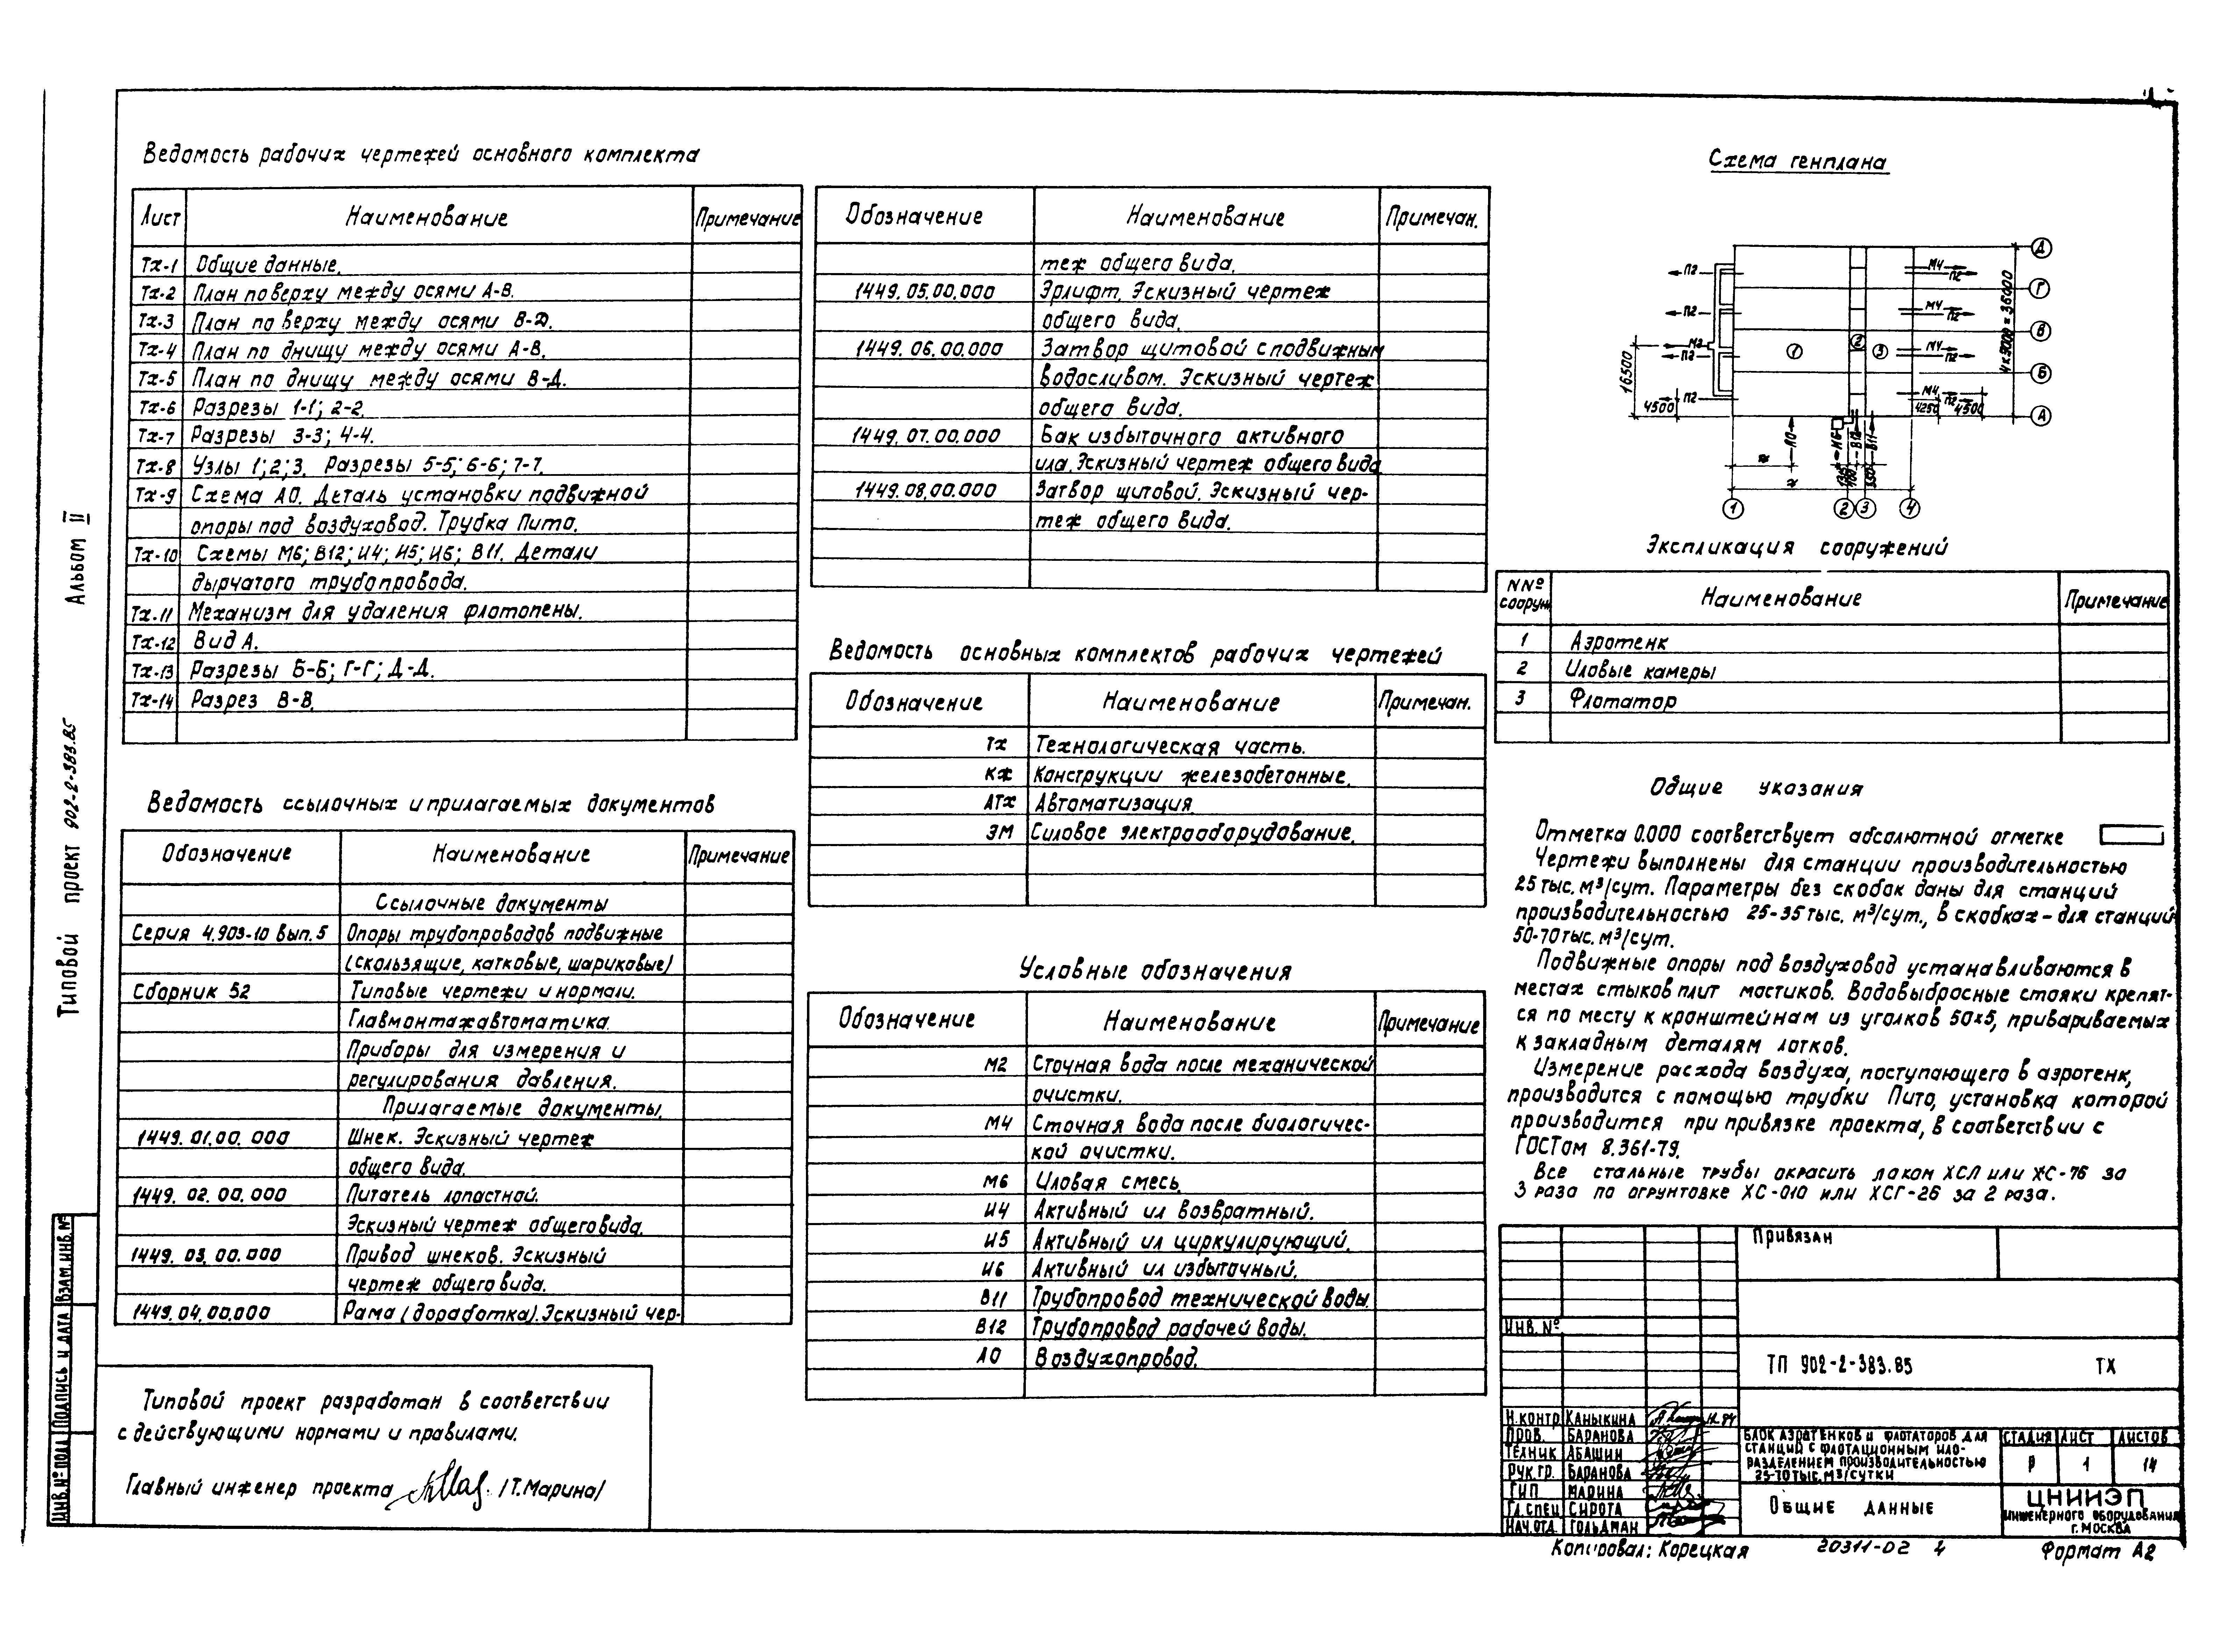 Альбом II
Типовой проект 902-2-383.85
Взам. инв. №
Подпись и дата
Инв. № подл
Ведомость рабочих чертежей основного комплекта
Лист Наименование Примечание
Тх-1 Общие данные.
Тх-2 План по верху между осями А-В.
Тх-3 План по верху между осями В-Д.
Тх-4 План по днищу между осями А-В.
Тх-5 План по днищу между осями В-Д.
Тх-6 Разрезы 1-1; 2-2.
Тх-7 Разрезы 3-3; 4-4.
Тх-8 Узлы 1; 2; 3. Разрезы 5-5; 6-6; 7-7.
Тх-9 Схема А0. Деталь установки подвижной
опоры под воздуховод. Трубка Пито.
Тх-10 Схемы М6; В12; И4; И5; И6; В11. Детали
дырчатого трубопровода.
Тх-11 Механизм для удаления флотопены.
Тх-12 Вид А.
Тх-13 Разрезы Б-Б; Г-Г; Д-Д.
Тх-14 Разрез В-В.
Ведомость ссылочных и прилагаемых документов
Обозначение Наименование Примечание
Ссылочные документы
Серия 4.903-10 вып. 5 Опоры трубопроводов подвижные
(скользящие, катковые, шариковые)
Сборник 52 Типовые чертежи и нормали.
Главмонтажавтоматика.
Приборы для измерения и
регулирования давления.
Прилагаемые документы.
1449. 01. 00. 000 Шнек. Эскизный чертеж
общего вида.
1449. 02. 00. 000 Питатель лопастной.
Эскизный чертеж общего вида.
1449. 03. 00. 000 Привод шнеков. Эскизный
чертеж общего вида.
1449. 04. 00. 000 Рама (доработка). Эскизный чер-
Типовой проект разработан в соответствии
с действующими нормами и правилами.
Главный инженер проекта /Т.Марина/
Обозначение Наименование Примечан.
теж общего вида.
1449. 05. 00. 000 Эрлифт. Эскизный чертеж
общего вида.
1449. 06. 00. 000 Затвор щитовой с подвижным
водосливом. Эскизный чертеж
общего вида.
1449. 07. 00. 000 Бак избыточного активного
ила. Эскизный чертеж общего вида
1449. 08. 00. 000 Затвор щитовой. Эскизный чер-
теж общего вида.
Ведомость основных комплектов рабочих чертежей
Обозначение Наименование Примечан.
Тх Технологическая часть.
Кж Конструкции железобетонные.
АТх Автоматизация
ЭМ Силовое электрооборудование.
Условные обозначения
Обозначение Наименование Примечание
М2 Сточная вода после механической
очистки.
М4 Сточная вода после биологичес-
кой очистки.
М6 Иловая смесь.
И4 Активный ил возвратный.
И5 Активный ил циркулирующий.
И6 Активный ил избыточный.
В11 Трубопровод технической воды.
В12 Трубопровод рабочей воды.
А0 Воздухопровод.
Схема генплана
Д
П2 М4 П2
Г
П2 М4 П2
4x9000=36000
В
М2 П2 1 2 3 М4 П2
16500
Б
П2 М4 П2
4500 4250 4500
А
А0 И6 В12 В11
1 2 3 4
Экспликация сооружений
NNº сооруж. Наименование Примечание
1 Аэротенк
2 Иловые камеры
3 Флотатор
Общие указания
Отметка 0.000 соответствует абсолютной отметке
Чертежи выполнены для станции производительностью
25 тыс. м³/сут. Параметры без скобок даны для станций
производительностью 25-35 тыс. м³/сут., в скобках – для станций
50-70 тыс. м³/сут.
Подвижные опоры под воздуховод устанавливаются в
местах стыков плит мостиков. Водовыбросные стояки крепят-
ся по месту к кронштейнам из уголков 50х5, привариваемых
к закладным деталям лотков.
Измерение расхода воздуха, поступающего в аэротенк,
производится с помощью трубки Пито, установка которой
производится при привязке проекта, в соответствии с
ГОСТом 8.361-79.
Все стальные трубы окрасить лаком ХСЛ или ХС-76 за
3 раза по огрунтовке ХС-010 или ХСГ-26 за 2 раза.
Привязан
Инв. №
ТП 902-2-383.85 ТХ
Н.контр Каныкина
Пров. Баранова
Техник Абашин
Рук.гр. Баранова
ГИП Марина
Гл.спец Сирота
Нач.отд. Гольдман
Блок аэротенков и флотаторов для
станций с флотационным ило-
разделением производительностью
25-70 тыс. м³/сутки
Стадия Лист Листов
Р 1 14
Общие данные
ЦНИИЭП
инженерного оборудования
г. Москва
Копировал: Корецкая 20311-02 4 Формат А2